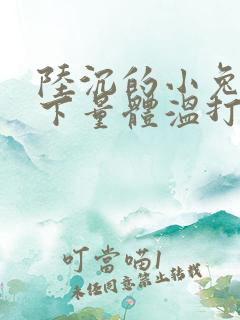 陸沉的小兔
下量體溫打
叮當喵1
未经同意禁止转载